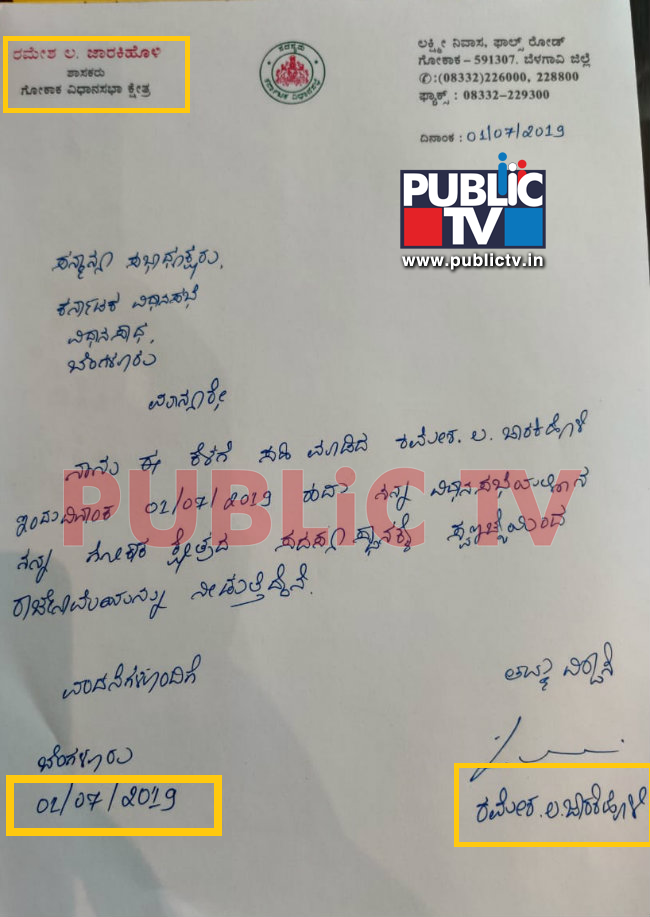 ರಮೇಶ ಲ. ಜಾರಕಿಹೊಳಿ
ಶಾಸಕರು
ಗೋಕಾಕ ವಿಧಾನಸಭಾ ಕ್ಷೇತ್ರ
ಲಕ್ಷ್ಮೀ ನಿವಾಸ, ಫಾಲ್ಸ್ ರೋಡ್
ಗೋಕಾಕ – 591307. ಬೆಳಗಾವಿ ಜಿಲ್ಲೆ
✆:(08332)226000, 228800
ಫ್ಯಾಕ್ಸ್ : 08332-229300
ದಿನಾಂಕ : 01/07/2019
PUBLiC
TV
www.publictv.in
ಸನ್ಮಾನ್ಯ ಸಭಾಧ್ಯಕ್ಷರು,
ಕರ್ನಾಟಕ ವಿಧಾನಸಭೆ
ವಿಧಾನಸೌಧ,
ಬೆಂಗಳೂರು
ಮಾನ್ಯರೇ,
ನಾನು ಈ ಕೆಳಗೆ ಸಹಿ ಮಾಡಿದ ರಮೇಶ. ಲ. ಜಾರಕಿಹೊಳಿ
ಇಂದು ದಿನಾಂಕ 01/07/2019 ರಂದು ನನ್ನ ವಿಧಾನಸಭೆಯಲ್ಲಿನ
PUBLiC TV
ನನ್ನ ಗೋಕಾಕ ಕ್ಷೇತ್ರದ ಸದಸ್ಯ ಸ್ಥಾನಕ್ಕೆ ಸ್ವಇಚ್ಛೆಯಿಂದ
ರಾಜೀನಾಮೆಯನ್ನು ನೀಡುತ್ತಿದ್ದೇನೆ.
ವಂದನೆಗಳೊಂದಿಗೆ
ತಮ್ಮ ವಿಶ್ವಾಸಿ
ಬೆಂಗಳೂರು
01/07/2019
ರಮೇಶ. ಲ. ಜಾರಕಿಹೊಳಿ